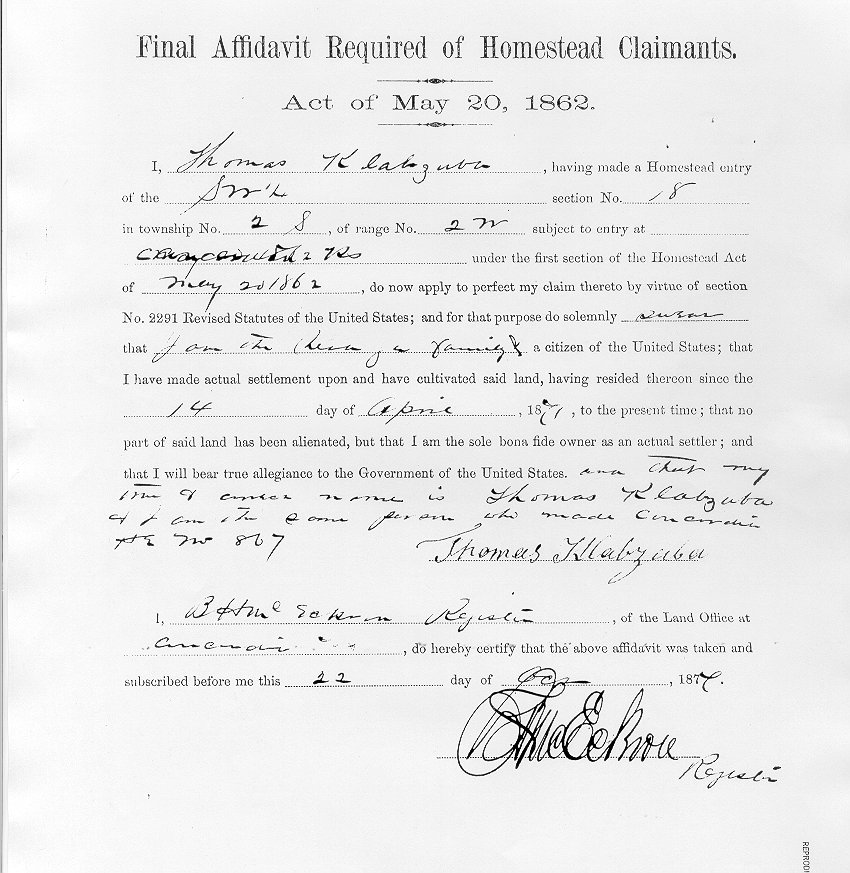 Final Affidavit Required of Homestead Claimants.
Act of May 20, 1862.
I, Thomas Klabzuba, having made a Homestead entry
of the SW¼ section No. 18
in township No. 2 S, of range No. 2 W subject to entry at
Ks under the first section of the Homestead Act
of May 20 1862, do now apply to perfect my claim thereto by virtue of section
No. 2291 Revised Statutes of the United States; and for that purpose do solemnly swear
that I am the Head of a family & a citizen of the United States; that
I have made actual settlement upon and have cultivated said land, having resided thereon since the
14 day of April, 1871, to the present time; that no
part of said land has been alienated, but that I am the sole bona fide owner as an actual settler; and
that I will bear true allegiance to the Government of the United States. and that my
true & name is Thomas Klabzuba
& I am the same person who made Concordia
HE No 867
Thomas Klabzuba
I, Register, of the Land Office at
Concordia, do hereby certify that the above affidavit was taken and
subscribed before me this 22 day of, 187
Register
REPROD